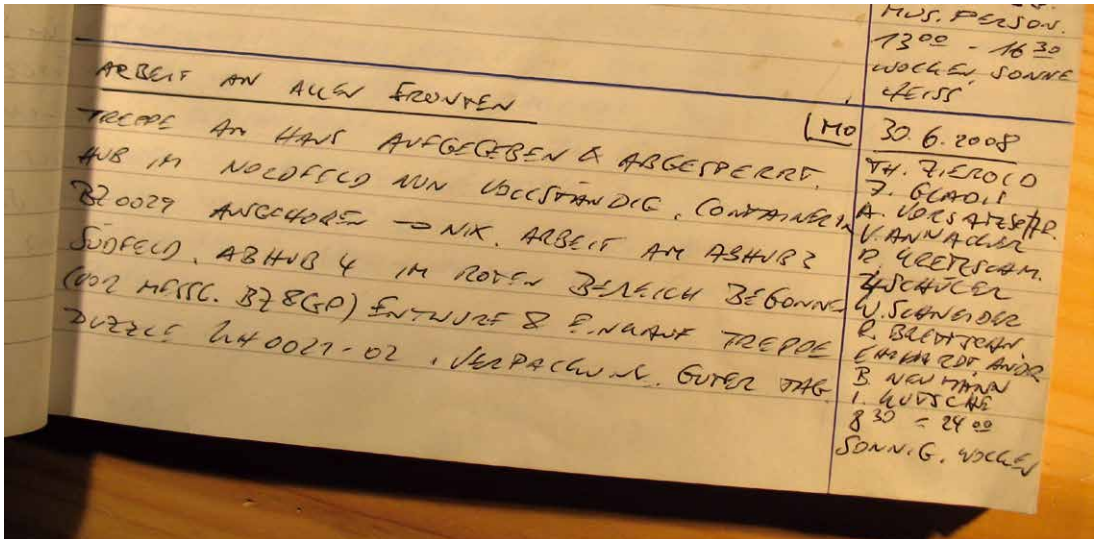 MUS. PERSON.
13 00 - 16 30
WOLKEN, SONNE
HEISS
ARBEIT AN ALLEN FRONTEN
TREPPE AM HAUS AUFGEGEBEN & ABGESPERRT.
HUB IM NORDFELD NUN VOLLSTÄNDIG. CONTAINER IN
BZ0029 ANGEHOBEN → NIX. ARBEIT AM ABHUB 3
SÜDFELD. ABHUB 4 IM ROTEN BEREICH BEGONNEN
(VOR MESSC. BZ 8(GP) ENTWURF & EINKAUF TREPPE
PUZZLE 2H0021-02. VERPACKUNG. GUTER TAG.
MO 30.6.2008
TH. ZIEROLD
Z. GLADIS
A. VORSATZSCHR.
V. ANNACKER
R. KRETZSCHM.
SCHÜLER
W. SCHNEIDER
R. BRETTSCHN.
EHRHARDT, ANDR
B. NEUMANN
I. KUTSCHE
8 30 - 24 00
SONNIG. WOLKEN